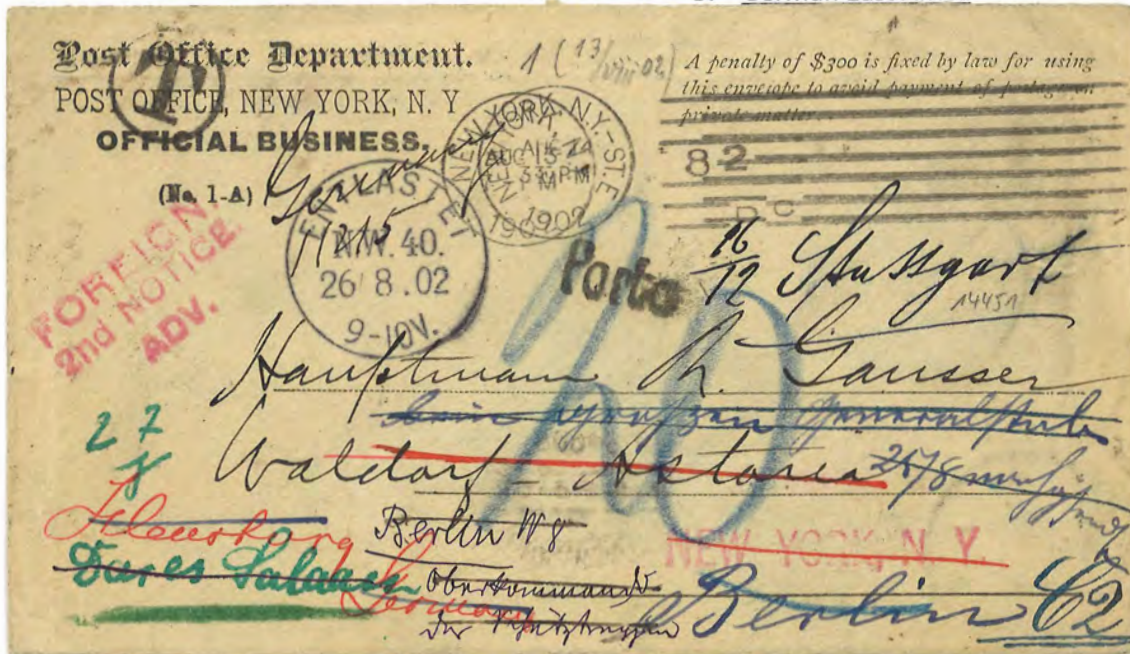 Post Office Department.
POST OFFICE, NEW YORK, N. Y
OFFICIAL BUSINESS.
(No. 1-A)
T
1 (13/VIII 02)
A penalty of $300 is fixed by law for using
this envelope to avoid payment of postage on
private matter.
NEW YORK, N.Y.-STE
AUG 15
PM
1902
82
D C
Germany
N.W. 40.
26/8.02
9-10V.
FOREIGN
2nd NOTICE.
ADV.
Porto
20
16/12 Stuttgart
14451
Hauptmann
beim großen Generalstab
Waldorf-Astoria
NEW YORK, N. Y.
27
8
Flensburg
Germany
Dares Salaam
Berlin W 8
Oberkommando
der Schutztruppen
Berlin C2